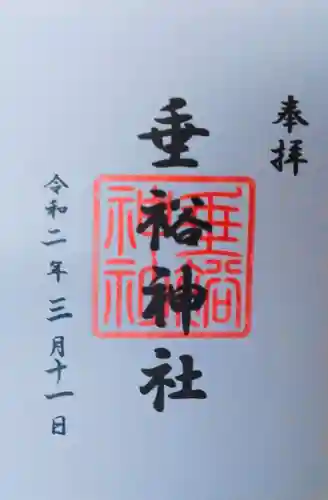 奉拝
垂裕神社
垂裕
神社
令和二年三月十一日